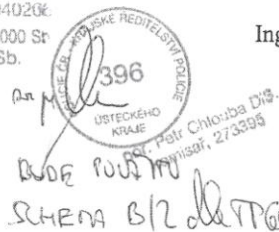 000 Sb.
Ing
POLICIE ČR - KRAJSKÉ ŘEDITELSTVÍ POLICIE
396
ÚSTECKÉHO
KRAJE
Petr Chlouba DiS.
273395
BUDE POUŽITO
SCHEMA B/2 dle TP6